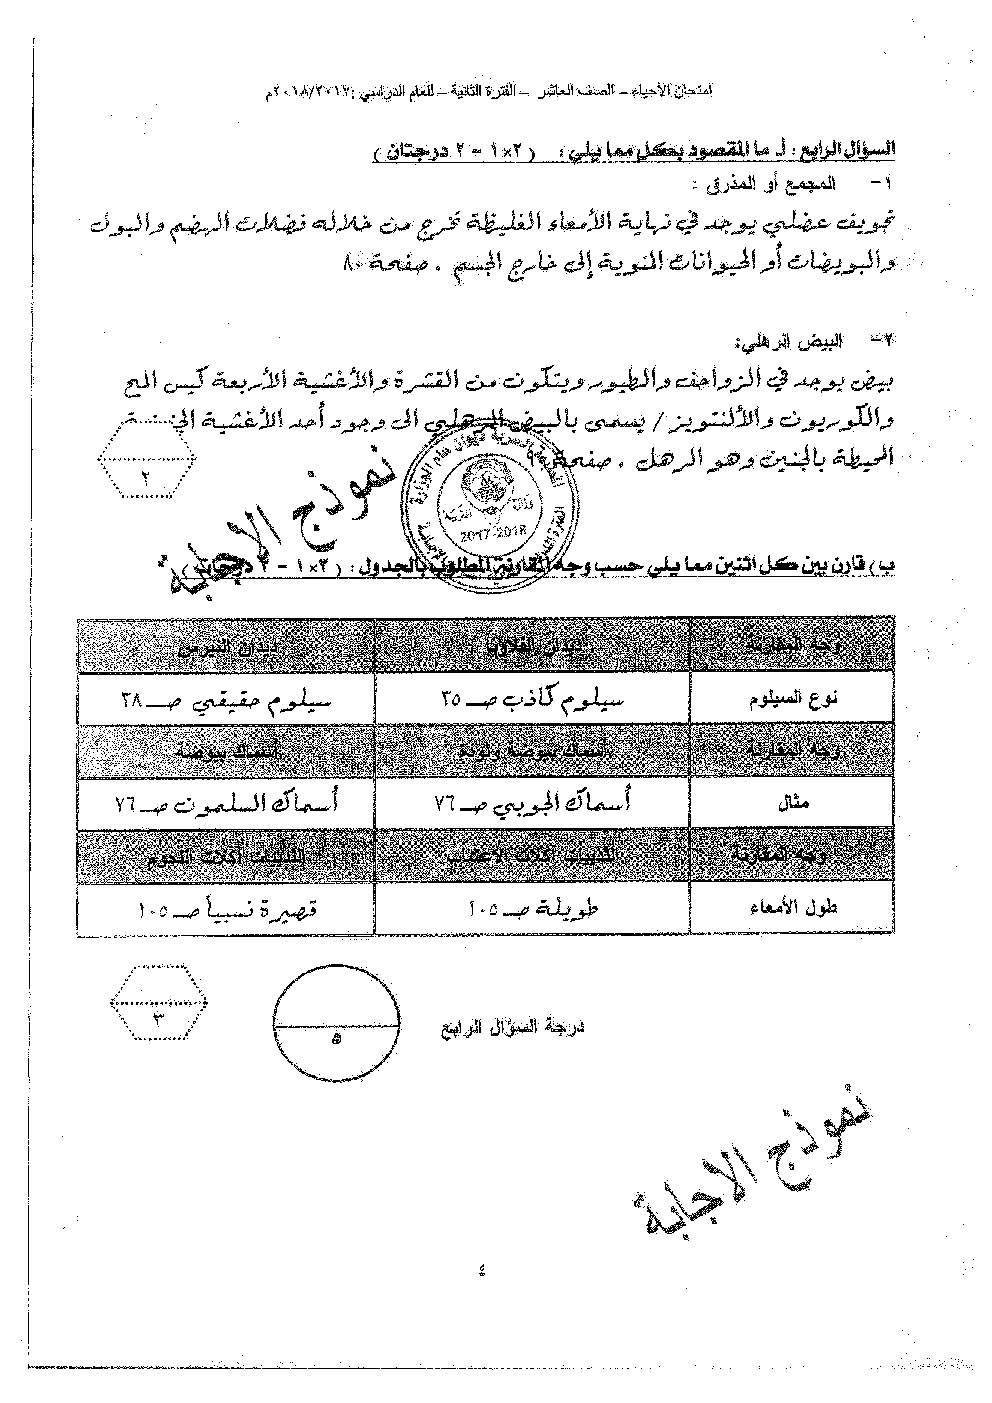 امتحان الأحياء – الصف العاشر – الفترة الثانية – للعام الدراسي :٢٠١٨/٢٠١٧م
السؤال الرابع : أ ـ ما المقصود بكل مما يلي : ( ٢×١ = ٢ درجتان )
١- المجمع أو المذرق :
تجويف عضلي يوجد في نهاية الأمعاء الغليظة تخرج من خلاله فضلات الهضم والبول
والبويضات أو الحيوانات المنوية إلى خارج الجسم . صفحة ٨٠
٢- البيض الرهلي:
بيض يوجد في الزواحف والطيور ويتكون من القشرة والأغشية الأربعة كيس المح
والكوريون والألنتويز / يسمى بالبيض الرهلي الى وجود أحد الأغشية
المحيطة بالجنين وهو الرهل . صفحة
٢
نموذج الاجابة
2017-2018
ب) قارن بين كل اثنين مما يلي حسب وجه المقارنة المطلوب بالجدول : ( ٣×١ = ٣ درجات )
وجه المقارنة
نوع السيلوم سيلوم كاذب صـ ٣٥ سيلوم حقيقي صـ ٣٨
وجه المقارنة أسماك بيوضة ولودة أسماك بيوضة
مثال أسماك الجوبي صـ ٧٦ أسماك السلمون صـ ٧٦
وجه المقارنة الثدييات آكلات الأعشاب الثدييات آكلات اللحوم
طول الأمعاء طويلة صـ ١٠٥ قصيرة نسبياً صـ ١٠٥
٣
درجة السؤال الرابع
٥
نموذج الاجابة
٤